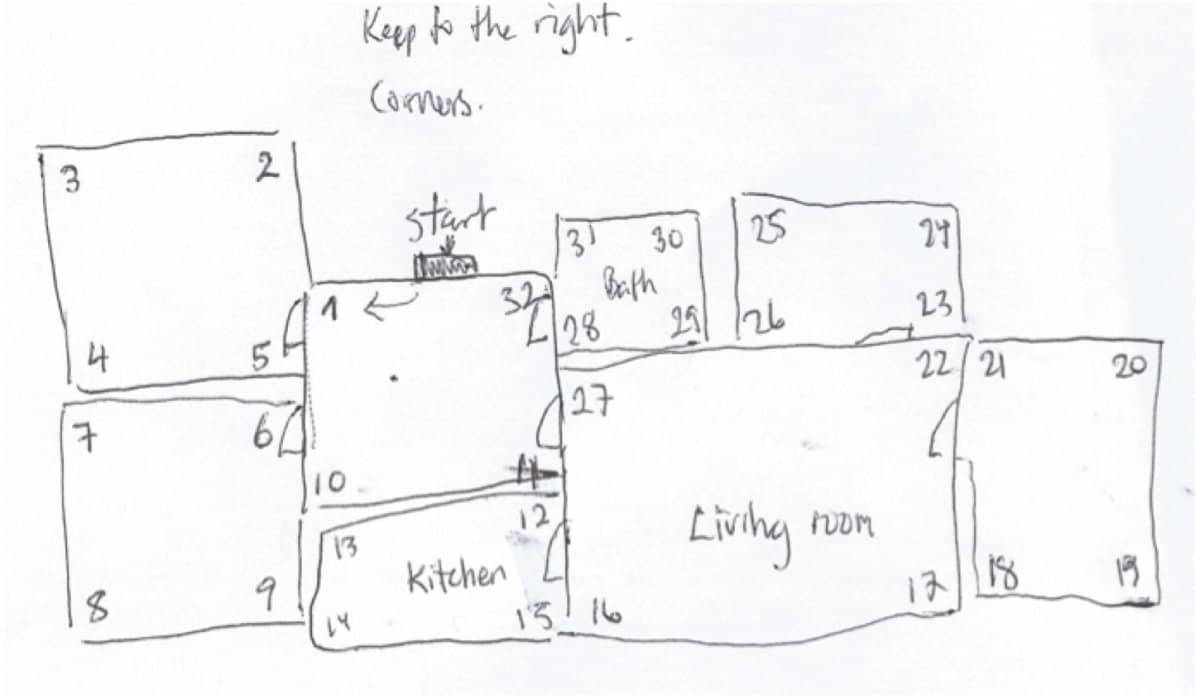 Keep to the right.
Corners.
3 2
start
31 30
25 24
Bath
1 32
28 29
26 23
4 5
22 21 20
27
7 6
10 11
12
13
Living room
Kitchen
8 9
14 15 16
17 18 19